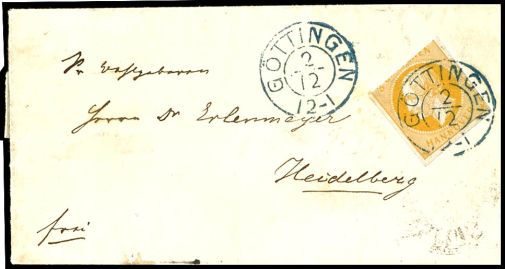 GÖTTINGEN
2/12
12-1
GÖTTINGEN
2/12
12-1
HANNOVER
Sr. Wohlgeboren
Herrn Dr Erlenmeyer
Heidelberg
frei